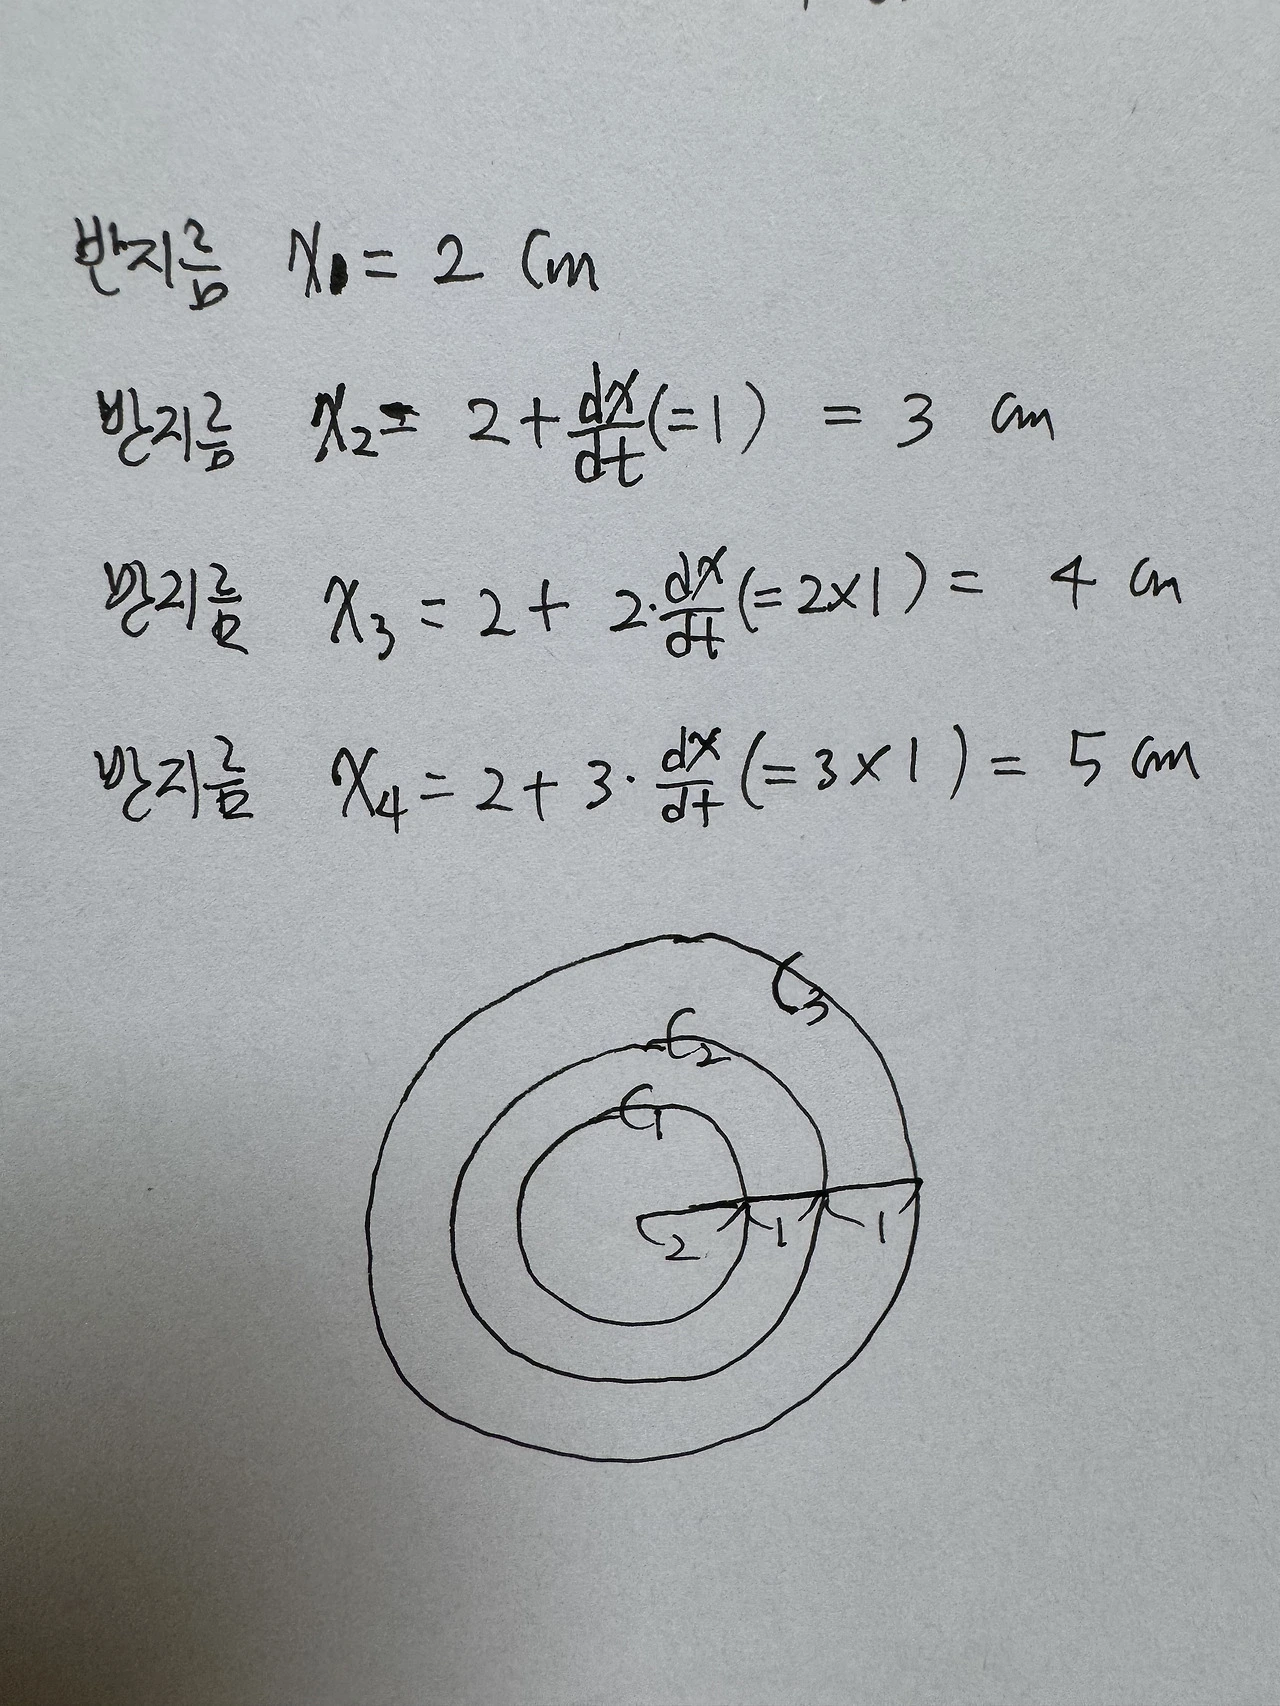 반지름 x₁ = 2 cm
반지름 x₂ = 2 + dx/dt (=1) = 3 cm
반지름 x₃ = 2 + 2·dx/dt (=2×1) = 4 cm
반지름 x₄ = 2 + 3·dx/dt (=3×1) = 5 cm
C₃
C₂
C₁
2 1 1